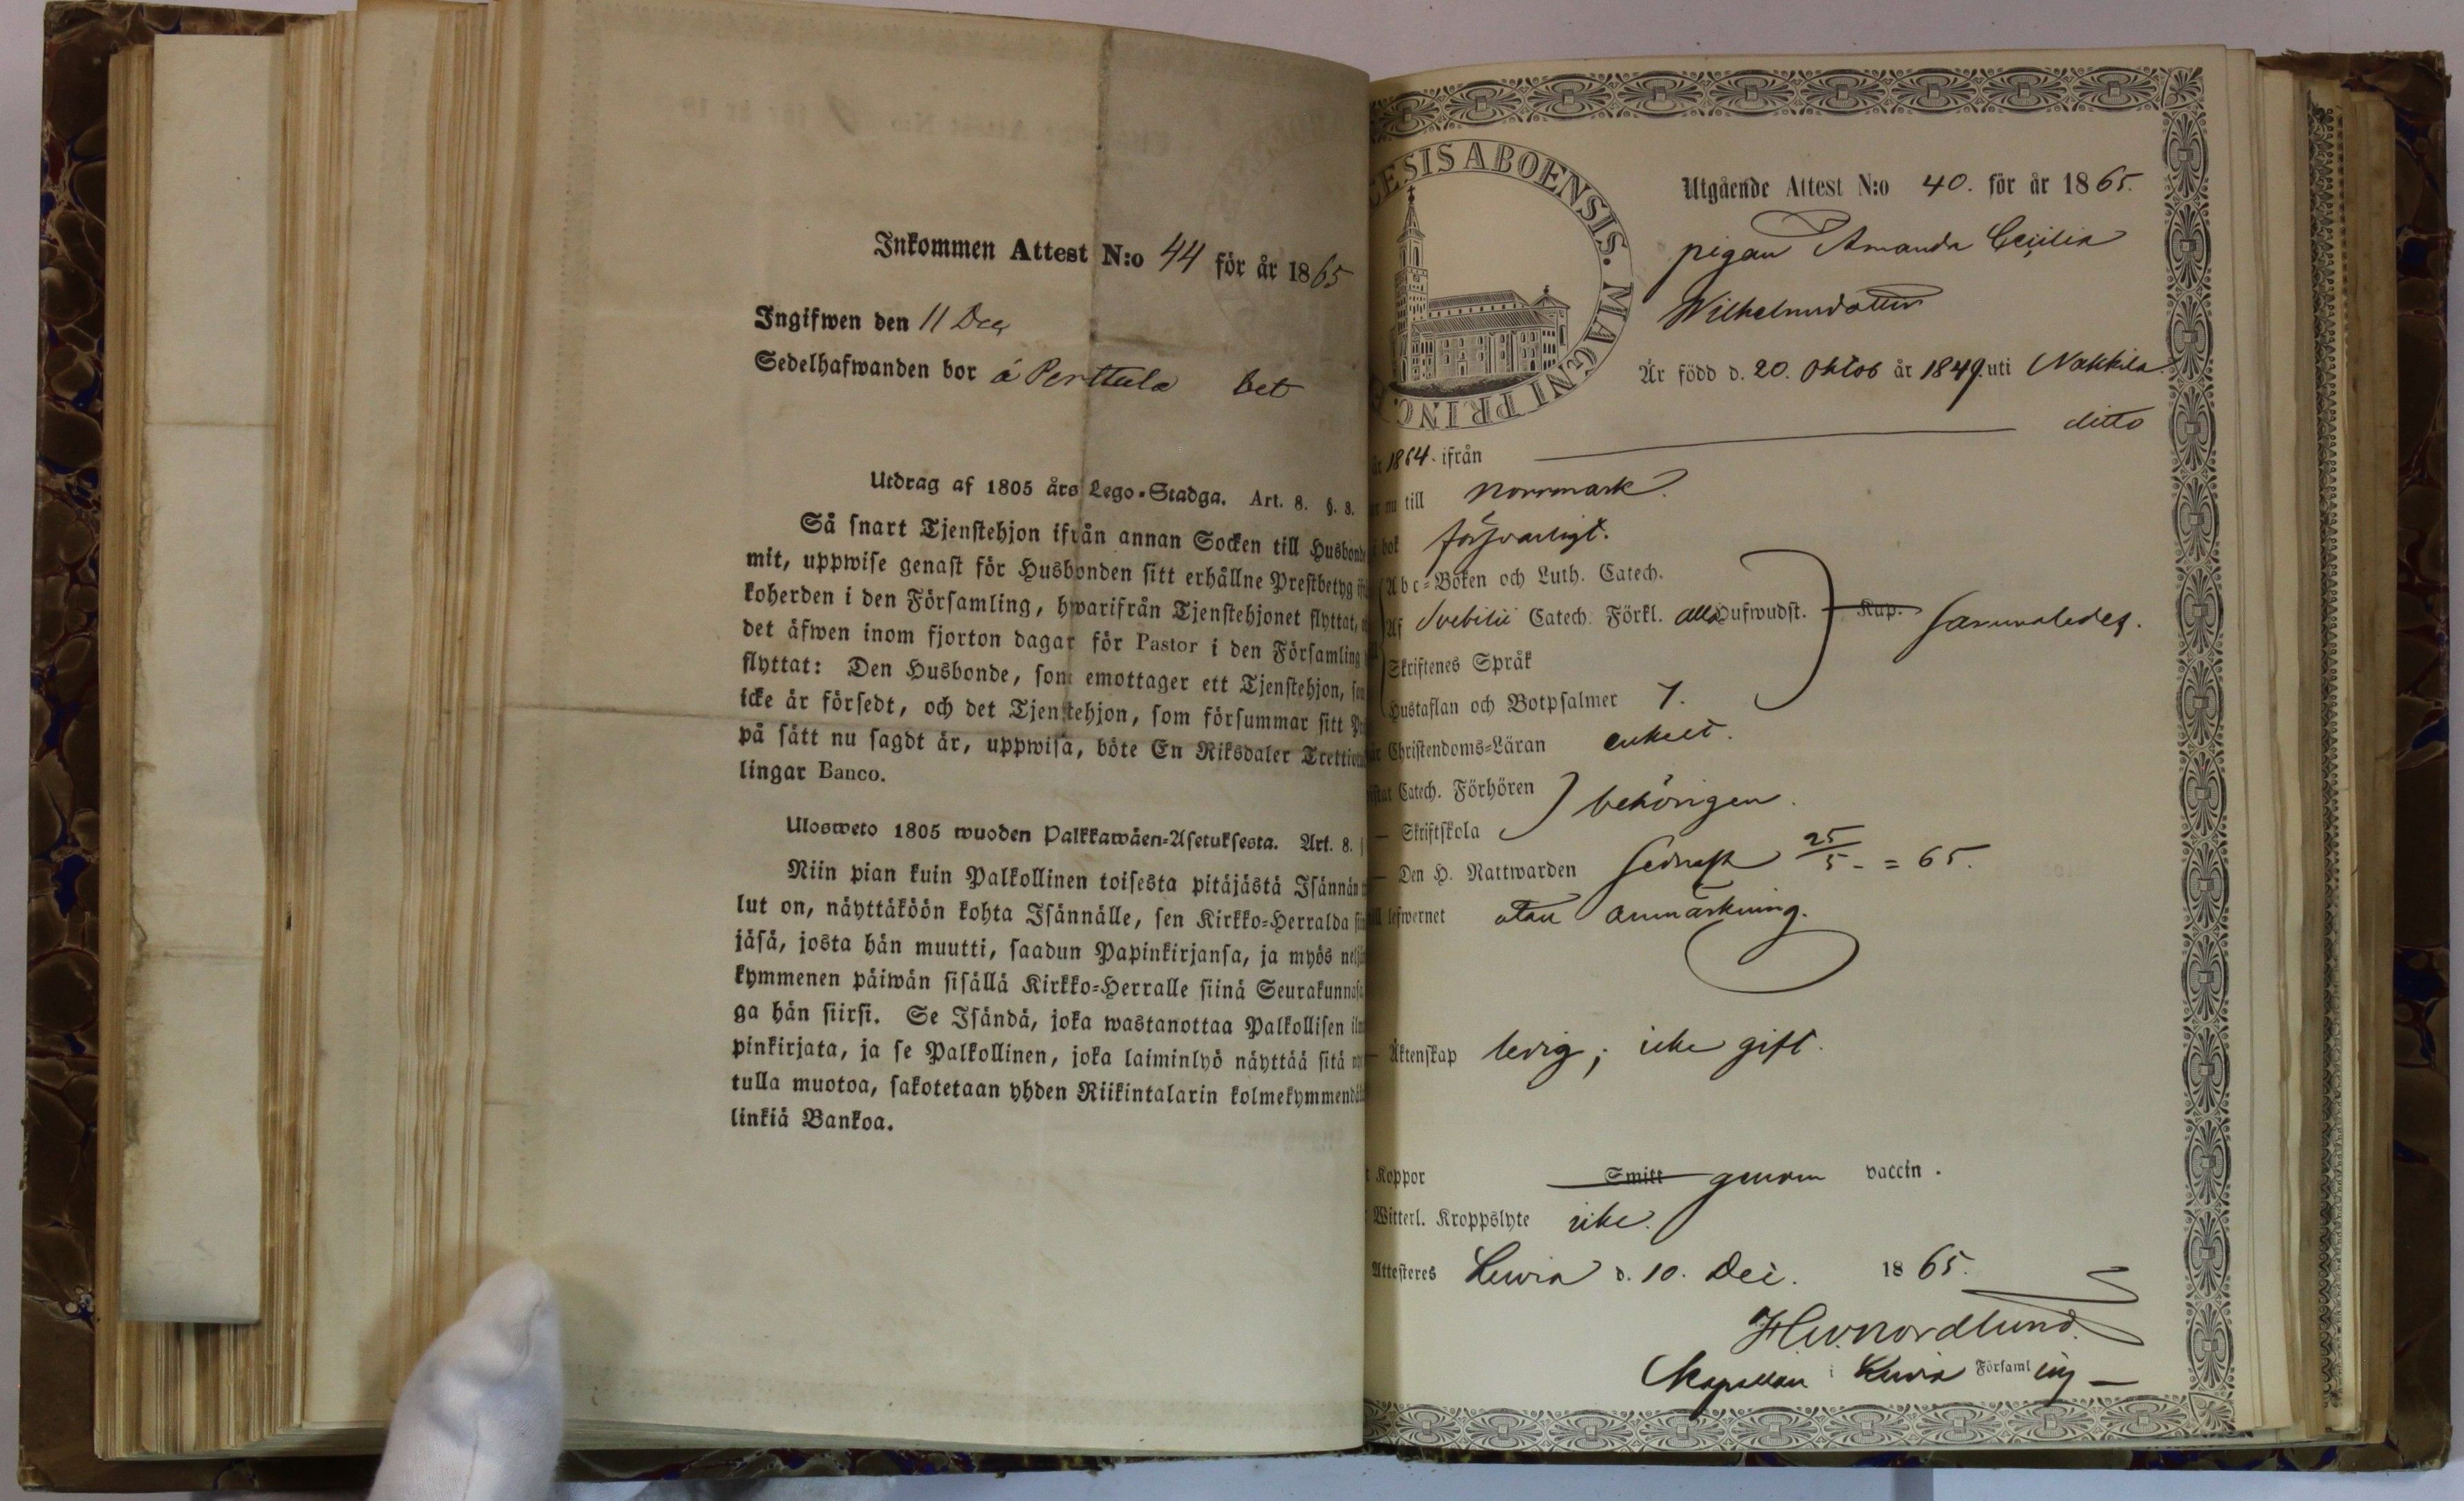 Inkommen Attest N:o 44 för år 1865
Ingifwen den 11 Dec
Sedelhafwanden bor å Perttula bet
Utdrag af 1805 års Lego-Stadga. Art. 8. §. 8.
Så snart Tjenstehjon ifrån annan Socken till Husbond
mit, uppwise genast för Husbonden sitt erhållne Prestbetyg
koherden i den Församling, hwarifrån Tjenstehjonet flyttat,
det äfwen inom fjorton dagar för Pastor i den Församling
flyttat: Den Husbonde, som emottager ett Tjenstehjon,
icke är försedt, och det Tjenstehjon, som försummar sitt
på sätt nu sagdt är, uppwisa, böte En Riksdaler
lingar Banco.
Ulosweto 1805 wuoden Palkkawäen-Asetuksesta. Art. 8.
Niin pian kuin Palkollinen toisesta pitäjästä Isännän
lut on, näyttäköön kohta Isännälle, sen Kirkko-Herralda
jäsä, josta hän muutti, saadun Papinkirjansa, ja myös
kymmenen päiwän sisällä Kirkko-Herralle siinä Seurakunnasa
ga hän siirsi. Se Isändä, joka wastanottaa Palkollisen
pinkirjata, ja se Palkollinen, joka laiminlyö näyttää sitä
tulla muotoa, sakotetaan yhden Riikintalarin
linkiä Bankoa.
ESIS ABOENSIS. MAGNI PRINC.
Utgående Attest N:o 40. för år 1865.
pigan Amanda Cecilia
Wilhelmsdotter
Är född d. 20. Oktob år 1849. uti Nakkila
ditto
år 1864. ifrån
nu till Norrmark.
bok försvarligt.
Abc-Boken och Luth. Catech.
Af Svebilii Catech. Förkl. alla Hufwudst. Kap. sammaledes.
Skriftenes Språk
Hustaflan och Botpsalmer 7.
Christendoms-Läran enkelt.
Catech. Förhören behörigen.
— Skriftskola
— Den H. Nattwarden sednast 25/5 = 65.
lefwernet utan anmärkning.
— Äktenskap ledig; icke gift.
Koppor Smitt genom vaccin.
Witterl. Kroppslyte icke.
Attesteres Luvia d. 10. Dec. 1865.
Nordlund.
Kapellan i Luvia Församling —